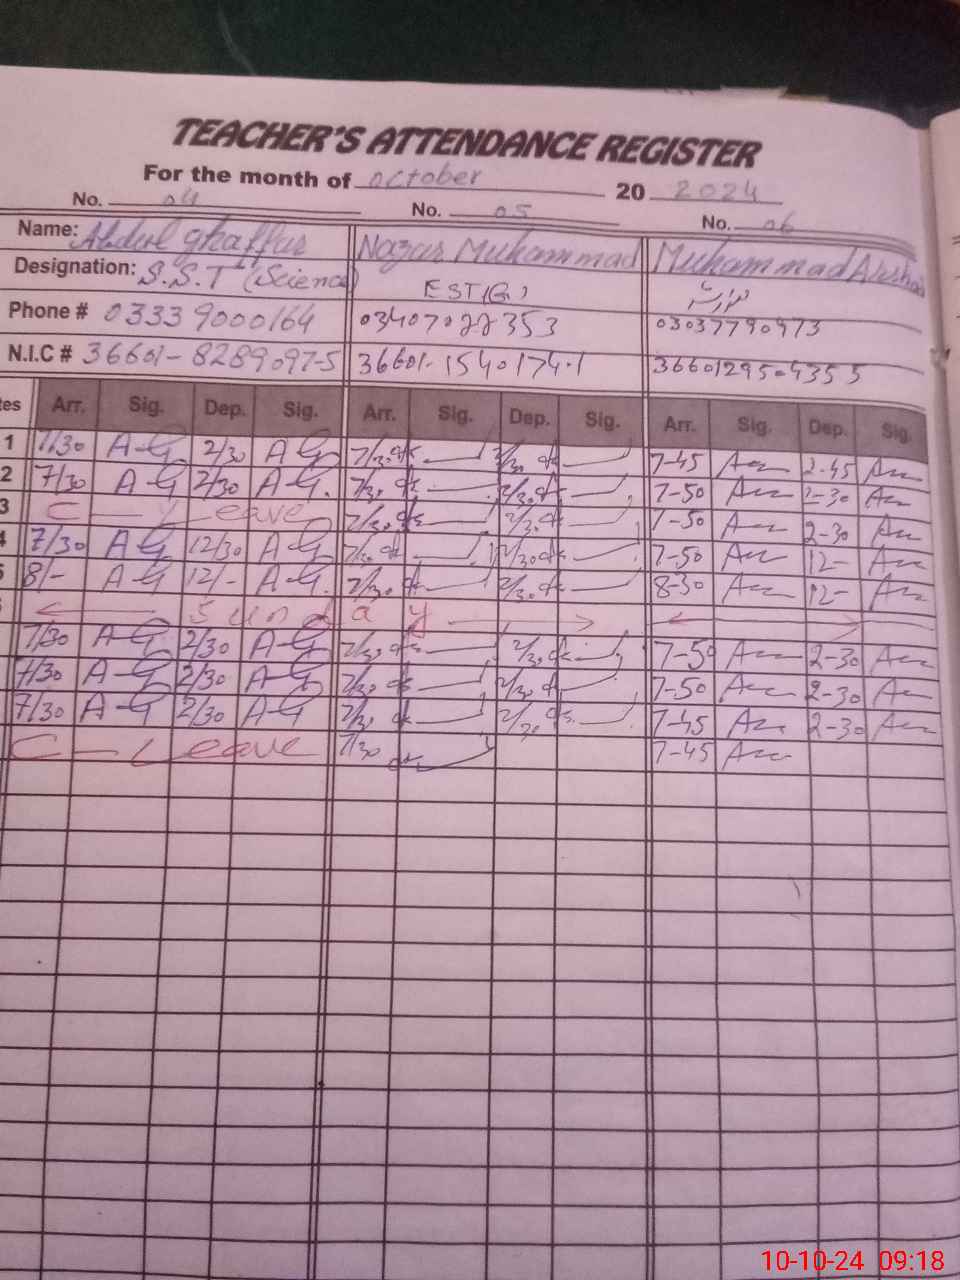 TEACHER'S ATTENDANCE REGISTER
For the month of October 20 2024
No. 04 No. 05 No. 06
Name: Abdul Ghaffar Nazar Muhammad Muhammad Arshad
Designation: S.S.T (Science) EST(G)
Phone # 03339000164 03407022353 03037790973
N.I.C # 36601-8289097-5 36601-1540174-1 3660129504355
tes Arr. Sig. Dep. Sig. Arr. Sig. Dep. Sig. Arr. Sig. Dep. Sig
1 7/30 A-G 2/30 A G 7/30 2/30 7-45 2-45
2 7/30 A G 2/30 A-G. 7/30 2/30 7-50 2-30
3 C-Leave 7/30 2/30 7-50 2-30
4 7/30 A G 12/30 A G 7/30 12/30 7-50 12-
5 8/- A G 12/- A-G. 7/30 2/30 8-30 12-
Sunday
7/30 A-G 2/30 A-G 7/30 2/30 7-50 2-30
7/30 A-G 2/30 A-G 7/30 2/30 7-50 2-30
7/30 A-G 2/30 A-G 7/30 2/30 7-45 2-30
C-Leave 7/30 7-45
10-10-24 09:18